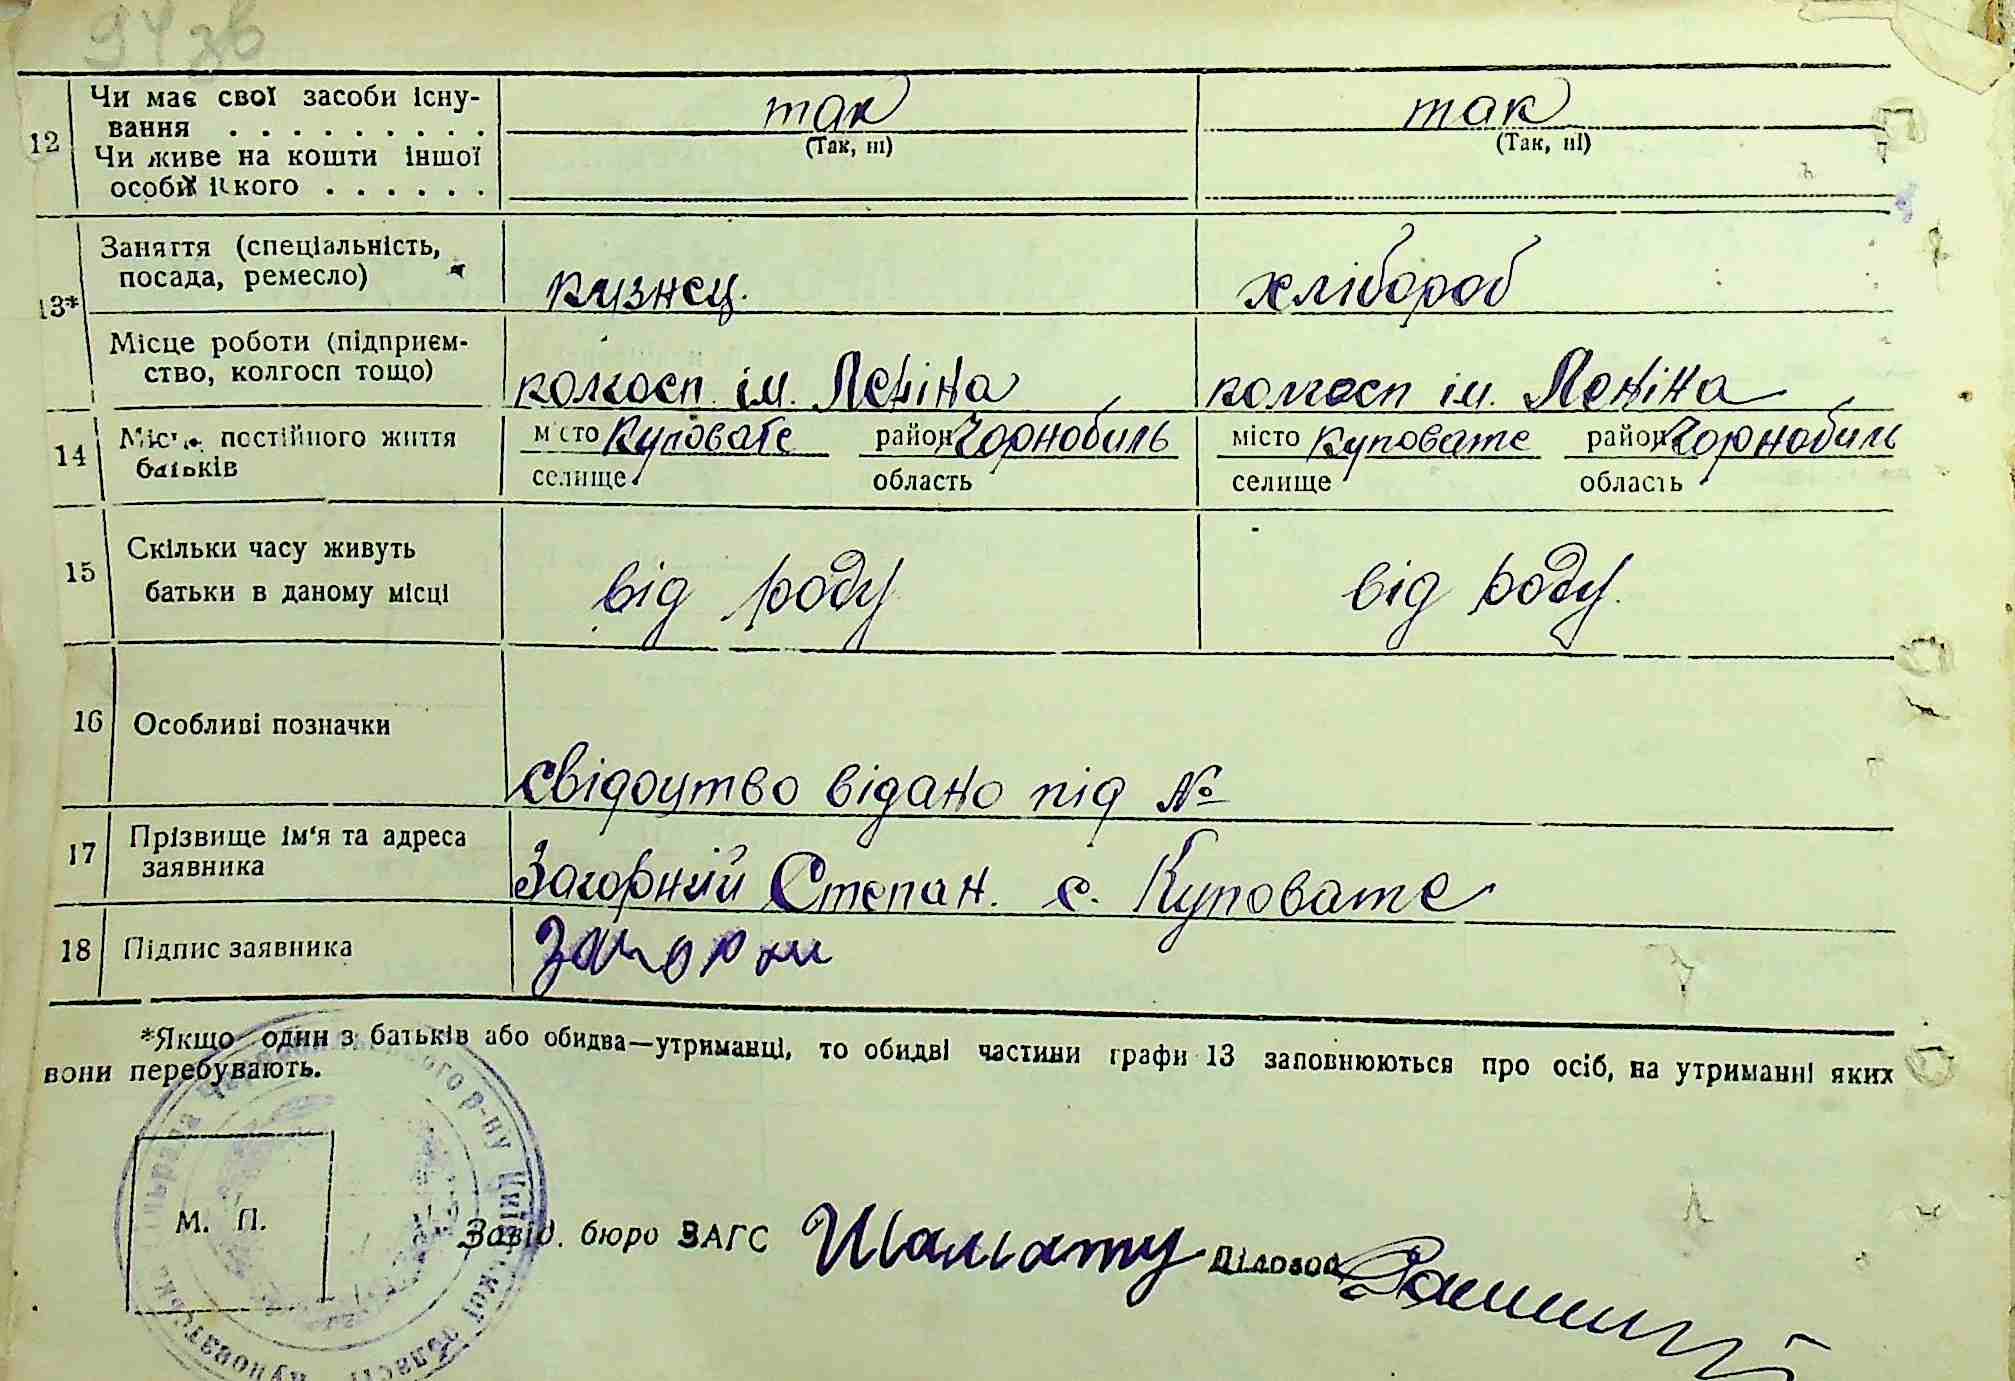 94зв
12 Чи має свої засоби існу- так так
вання . . . . . . . . . (Так, ні) (Так, ні)
Чи живе на кошти іншої
особи і кого . . . . . .
13* Заняття (спеціальність,
посада, ремесло) кузнец. хлібороб
Місце роботи (підприєм-
ство, колгосп тощо) колгосп ім. Леніна колгосп ім. Леніна
14 Місце постійного життя місто Куповате район Чорнобиль місто Куповате район Чорнобиль
батьків селище область селище область
15 Скільки часу живуть
батьки в даному місці від роду від роду.
16 Особливі позначки
свідоцтво відано під №
17 Прізвище ім'я та адреса
заявника Загорний Степан. с. Куповате
18 Підпис заявника Загорни
*Якщо один з батьків або обидва—утриманці, то обидві частини графи 13 заповнюються про осіб, на утриманні яких
вони перебувають.
М. П.
Завід. бюро ЗАГС Діловод